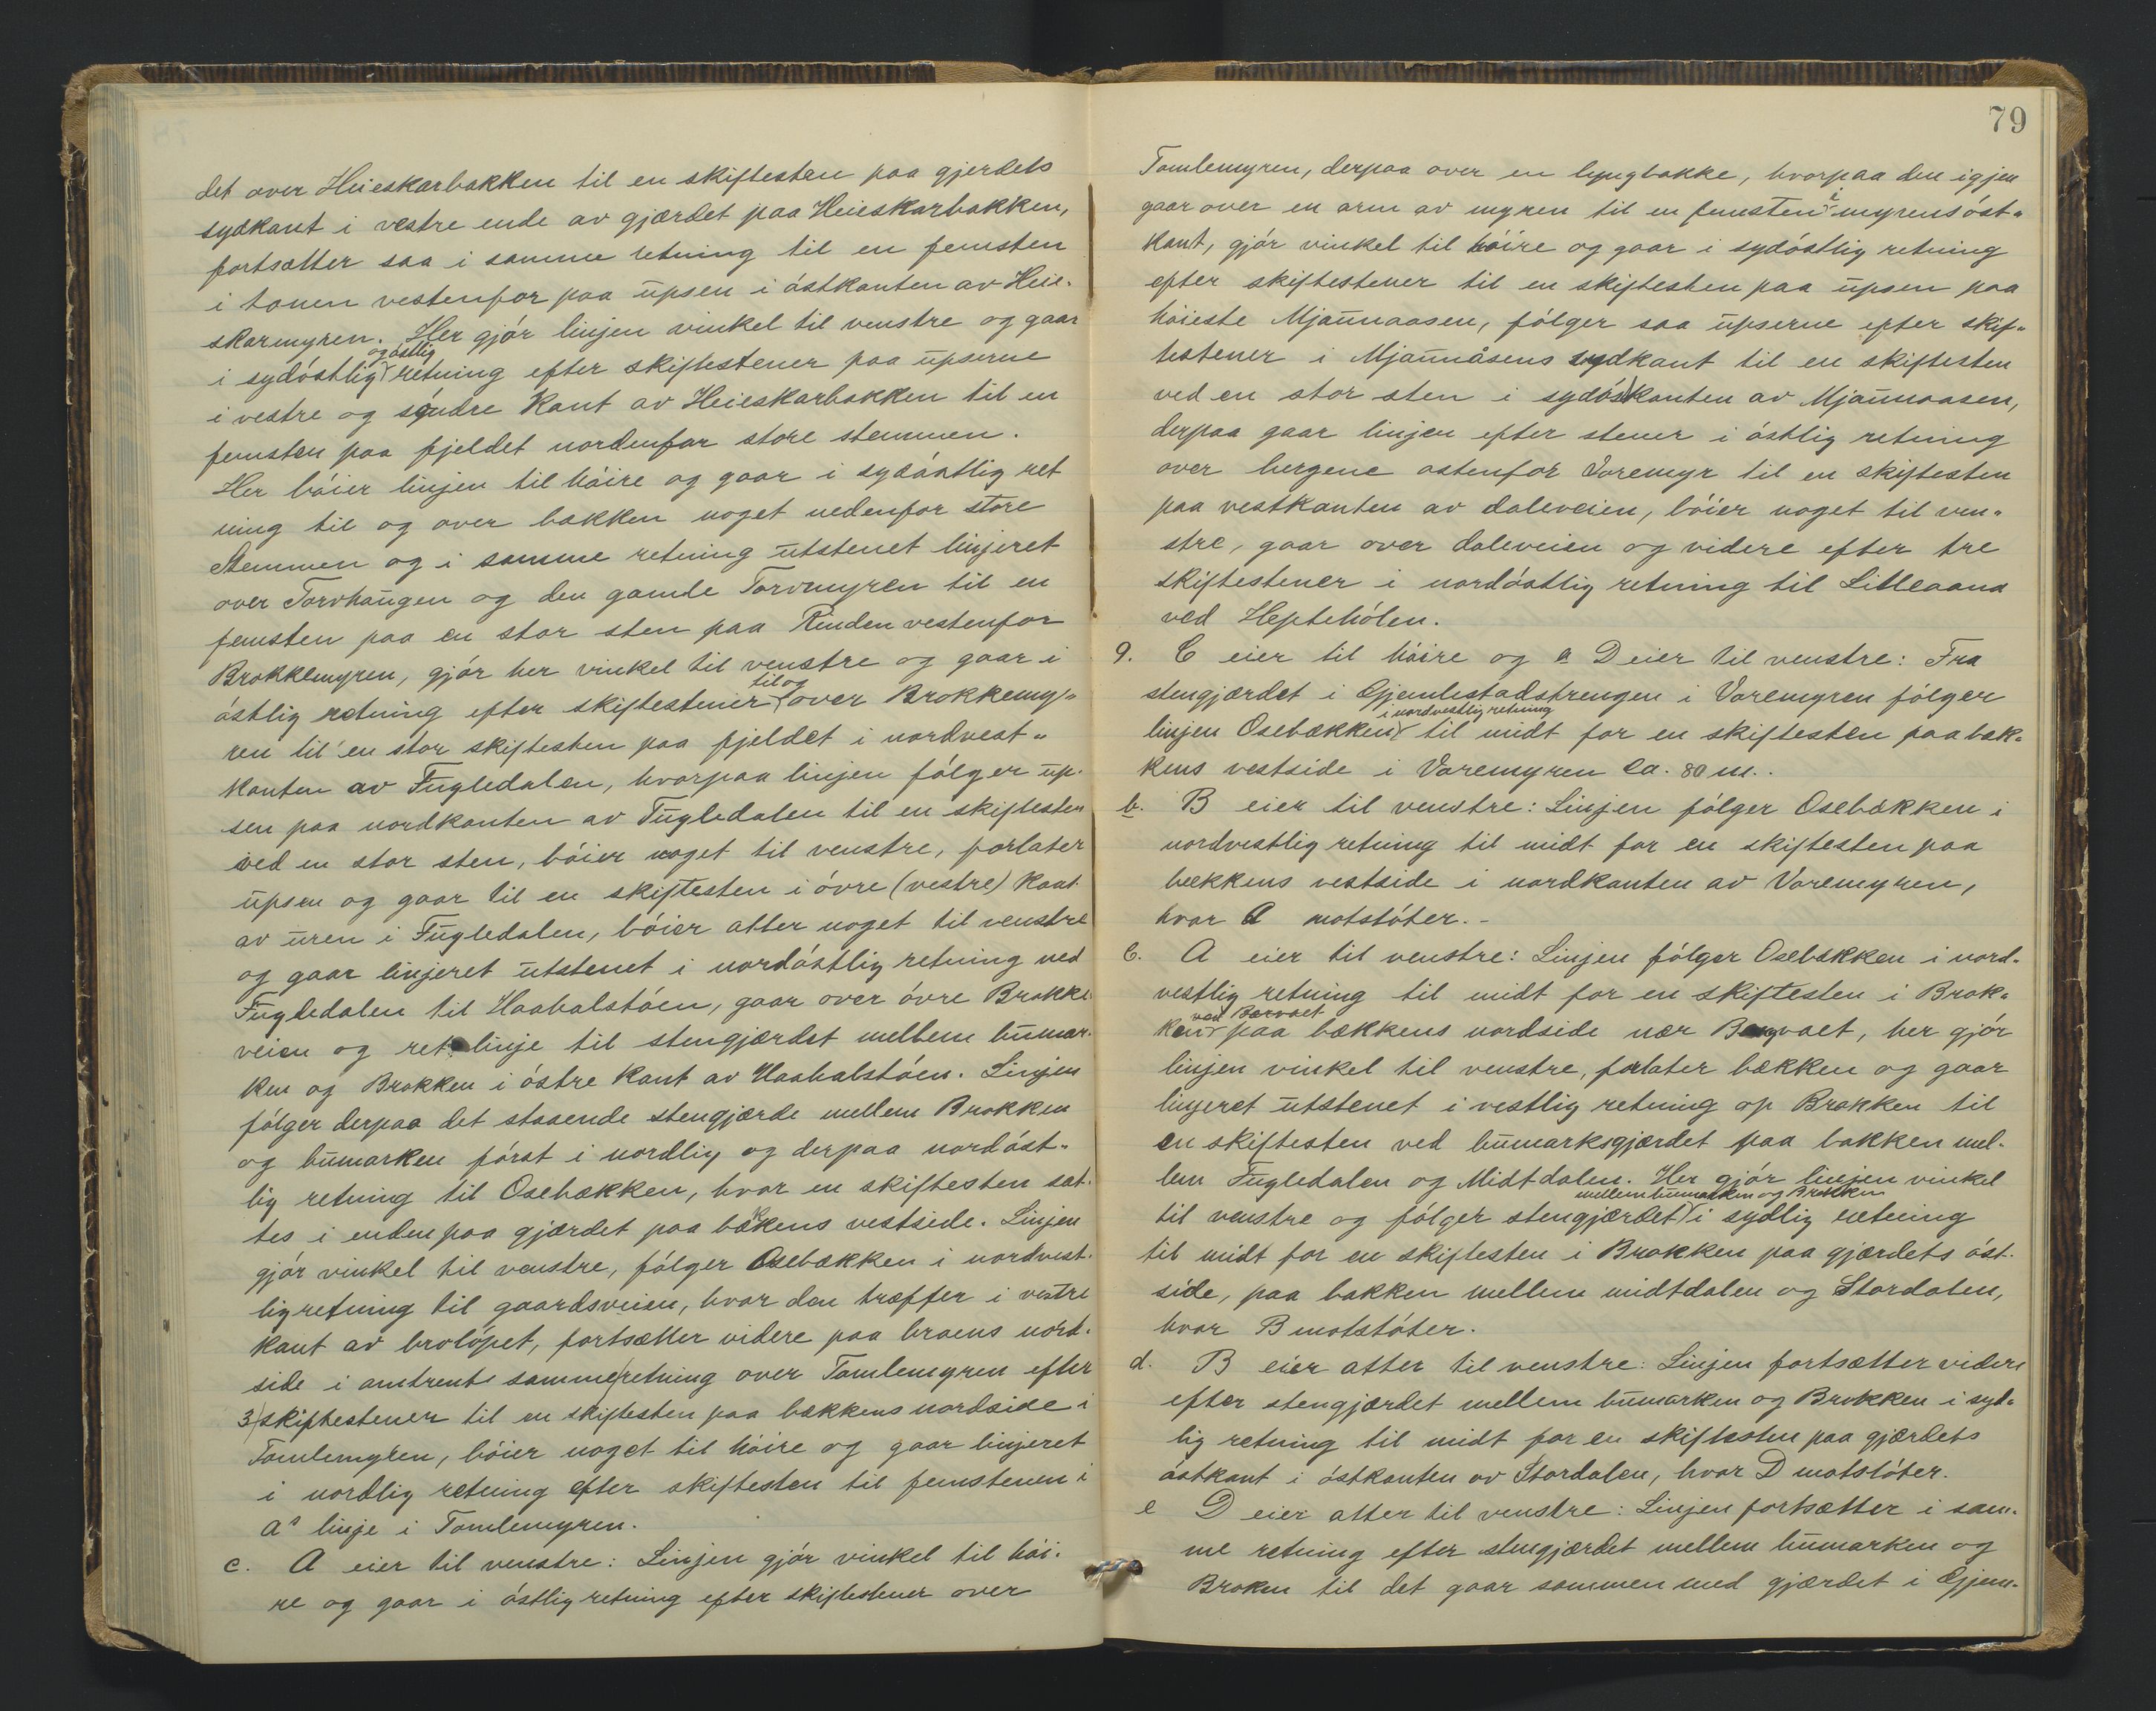 det over Heieskarbakken til en skiftesten paa gjerdets
sydkant i vestre ende av gjærdet paa Heieskarbakken,
fortsætter saa i samme retning til en femsten
i touen vestenfor paa upsen i óstkanten av Heie-
skarmyren. Her gjór linjen vinkel til venstre og gaar
og óstlig
i sydóstlig retning efter skiftestener paa upserne
i vestre og sóndre kant av Heieskarbakken til en
femsten paa fjeldet nordenfor store stemmen.
Her bóier linjen til hóire og gaar i sydóstlig ret
ning til og over bækken noget nedenfor store
Stemmen og i samme retning utstenet linjeret
over Torvhaugen og den gamle Torvmyren til en
femsten paa en stor sten paa Rinden vestenfor
Brokkemyren, gjór her vinkel til venstre og gaar i
til og
óstlig retning efter skiftestener over Brokkemy-
ren til en stor skiftesten paa fjeldet i nordvest-
kanten av Fugledalen, hvorpaa linjen fólger up-
sen paa nordkanten av Fugledalen til en skiftesten
ved en stor sten, bóier noget til venstre, forlater
upsen og gaar til en skiftesten i óvre (vestre) kant
av uren i Fugledalen, bóier atter noget til venstre
og gaar linjeret utstenet i nordóstlig retning ned
Fugledalen til Haahalstóen, gaar over óvre Brokke
veien og ret linje til stengjærdet mellem bumar-
ken og Brokken i óstre kant av Haahalstóen. Linjen
fólger derpaa det staaende stengjærde mellem Brokken
og bumarken fórst i nordlig og derpaa nordóst-
lig retning til Osebækken, hvor en skiftesten sæt-
tes i enden paa gjærdet paa bækkens vestside. Linjen
gjór vinkel til venstre, fólger Osebækken i nordvest-
lig retning til gaardsveien, hvor den træffer i vestre
kant av brolópet, fortsætter videre paa broens nord-
side i omtrent samme retning over Tomlemyren efter
3 skiftestener til en skiftesten paa bækkens nordside i
Tomlemyren, bóier noget til hóire og gaar linjeret
i nordlig retning efter skiftesten til femstenen i
a^s linje i Tomlemyren.
c. A eier til venstre: Linjen gjór vinkel til hói-
re og gaar i óstlig retning efter skiftestener over
79
Tomlemyren, derpaa over en lyngbakke, hvorpaa den igjen
i
gaar over en arm av myren til en femsten myrens óst-
kant, gjór vinkel til hóire og gaar i sydóstlig retning
efter skiftestener til en skiftesten paa upsen paa
hóieste Mjaunaasen, fólger saa upserne efter skif-
testener i Mjaunåsens sydkant til en skiftesten
ved en stor sten i sydóstkanten av Mjaunaasen,
derpaa gaar linjen efter stener i óstlig retning
over bergene ostenfor Voremyr til en skiftesten
paa vestkanten av daleveien, bóier noget til ven-
stre, gaar over daleveien og videre efter tre
skiftestener i nordóstlig retning til Litleaana
ved Heptehólen.
9. C eier til hóire og a D eier til venstre: Fra
stengjærdet i Gjemlestadstrengen i Voremyren fólger
i nordvestlig retning
linjen Osebækken til midt for en skiftesten paa bæk-
kens vestside i Voremyren ca. 80 m..
b. B eier til venstre: Linjen fólger Osebækken i
nordvestlig retning til midt for en skiftesten paa
bækkens vestside i nordkanten av Voremyren,
hvor A motstóter. -
C. A eier til venstre: Linjen fólger Osebækken i nord-
vestlig retning til midt for en skiftesten i Brok-
ved Barvaet
ken paa bækkens nordside nær Barvaet, her gjór
linjen vinkel til venstre, forlater bækken og gaar
linjeret utstenet i vestlig retning op Brokken til
en skiftesten ved bumarksgjærdet paa bakken mel-
lem Fugledalen og Midtdalen. Her gjór linjen vinkel
mellem bumarken og Brokken
til venstre og fólger stengjærdet i sydlig retning
til midt for en skiftesten i Brokken paa gjærdets óst-
side, paa bakken mellem midtdalen og Stordalen,
hvor B motstóter.
d. B eier atter til venstre: Linjen fortsætter videre
efter stengjærdet mellem bumarken og Brokken i syd-
lig retning til midt for en skiftesten paa gjærdets
óstkant i óstkanten av Stordalen, hvor D motstóter.
e D eier atter til venstre: Linjen fortsætter i sam-
me retning efter stengjærdet mellem bumarken og
Broken til det gaar sammen med gjærdet i Gjem-